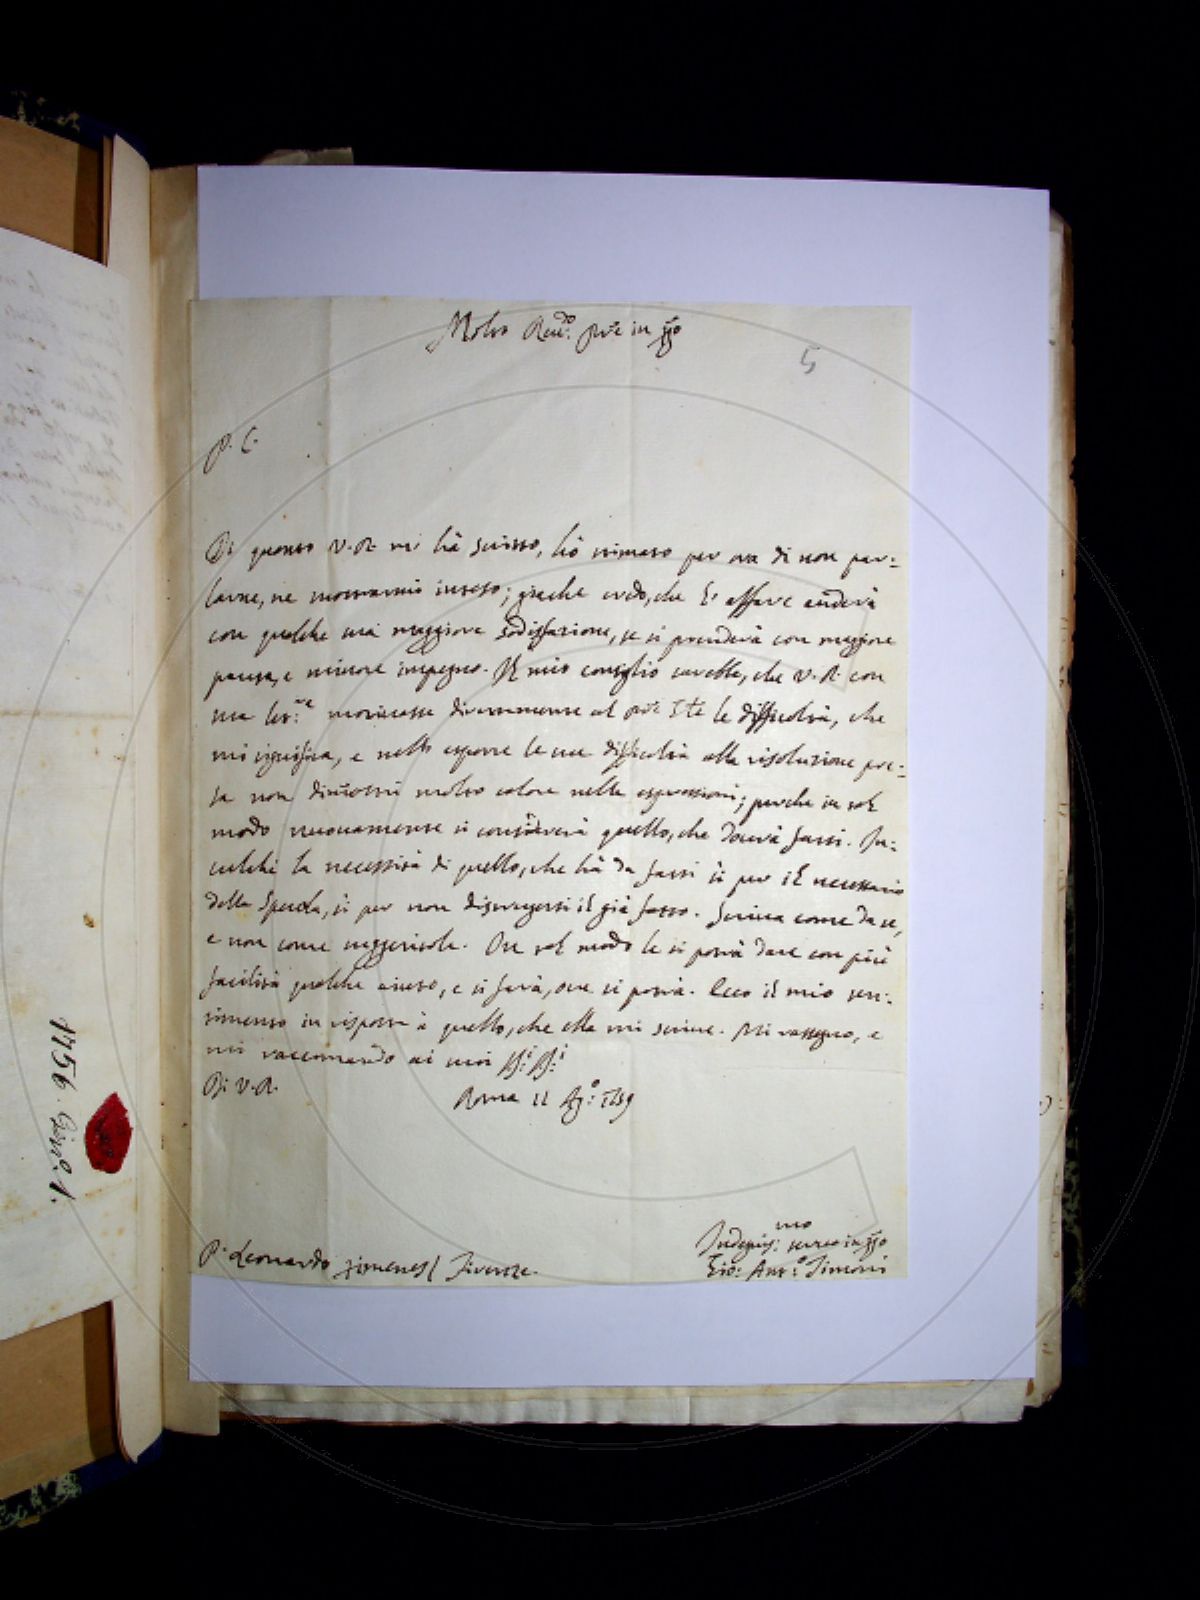 Molto Rev:do Pre in Xpo
5
P. C.
Di quanto V. R. mi hà scritto, hò stimato per ora di non par-
larne, ne mostrarmi inteso; giache credo, che l' affare anderà
con qualche sua maggiore sodisfazione, se si prenderà con maggiore
pausa, e minore impegno. Il mio consiglio sarebbe, che V. R. con
sua let:re motivasse direttamente al Pre le difficoltà, che
mi significa, e nello esporre le sue difficoltà alla risoluzione pre-
sa non dimostri molto calore nelle espressioni; perche in tal
modo nuovamente si considererà quello, che dovrà farsi. In-
culchi la necessità di quello, che hà da farsi sì per il necessario
della Specola, sì per non distruggersi il già fatto. Scriva come da se,
e non come suggeritole. In tal modo le si potrà dare con più
facilità qualche aiuto, e si farà, ove si potrà. Ecco il mio sen-
timento in risposta à quello, che ella mi scrive. Mi rassegno, e
mi raccomando ai suoi SS:i SS:i
Di V. R.
Roma 11 Ag:o 1759
P. Leonardo Ximenes / Firenze.
Indegnis:mo servo in Xpo
Gio: Ant:o Timoni
1756.